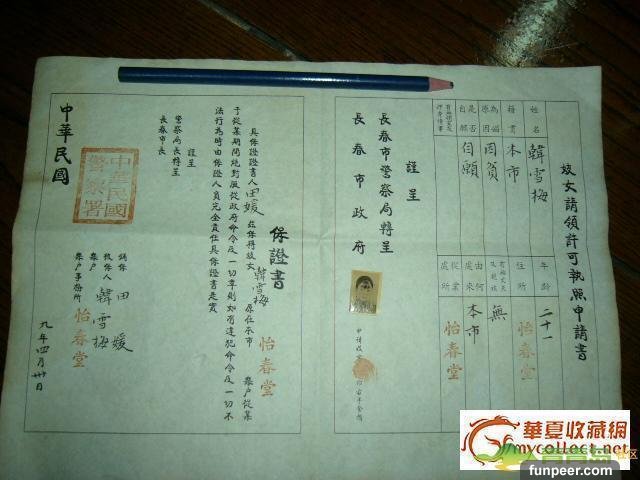 妓女請領許可執照申請書
姓名 韓雪梅 年齡 二十一
籍貫 本市 住所 怡春堂
為娼原因 因貧 有無丈夫及親族 無
是否自願 自願 由何處來 本市
從業處所 怡春堂
謹呈
長春市警察局轉呈
長春市政府
保證書
具保證書人田媛茲保得妓女韓雪梅原在本市怡春堂樂户從業
于從業期間絶對服從政府命令及一切章則如有違犯命令及一切不
法行為時由保證人負完全責任具保證書是實
謹呈
警察局長轉呈
長春市長
鋪保 田媛
被保人 韓雪梅
樂户 樂户事務所 怡春堂
中華民國
九年四月卅日
中華民國警察署
華夏收藏網
www.mycollect.net
funpeer.com